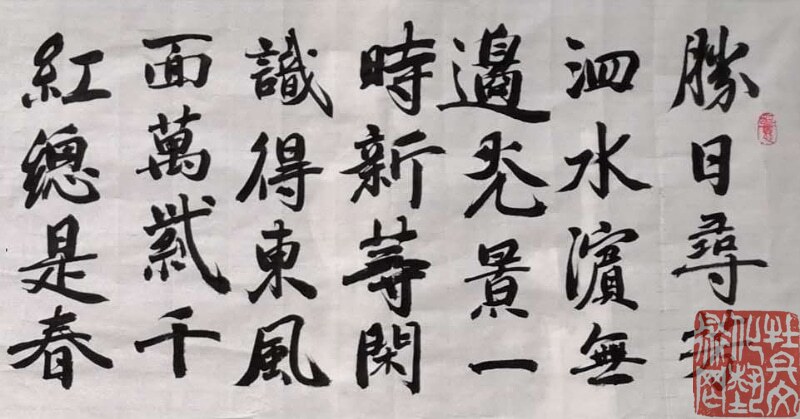 勝日尋
泗水濱無
邊光景一
時新等閑
識得東風
面萬紫千
紅總是春